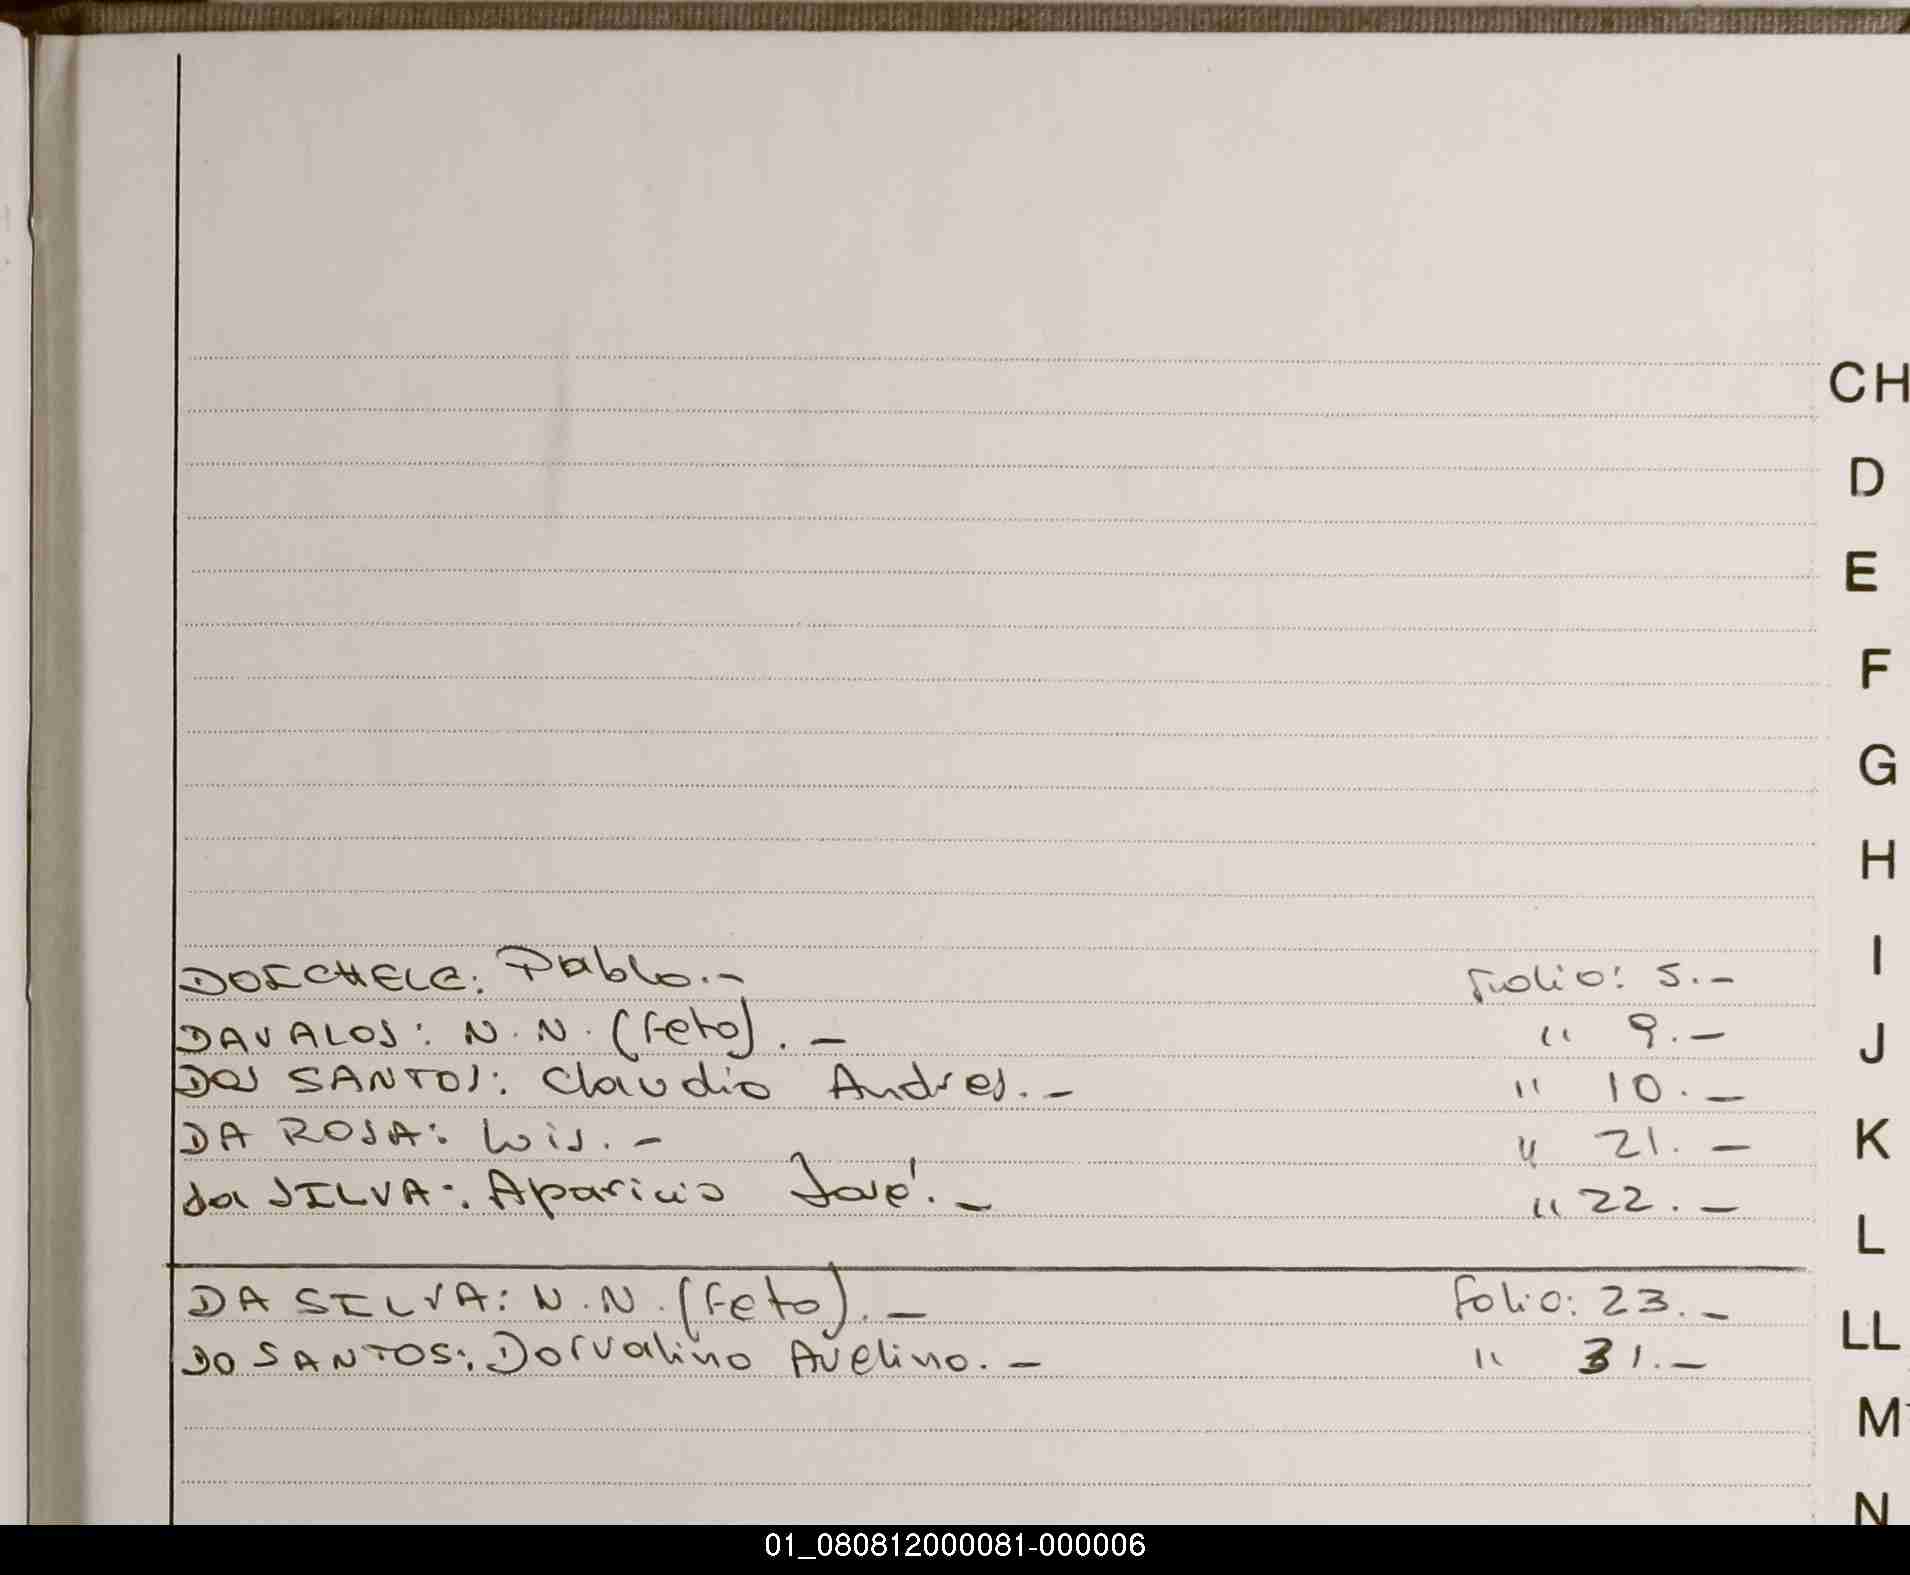 CH
D
E
F
G
H
DOICHELE: Pablo.- Folio: 5.-
I
DAVALOS: N.N. (Feto).- " 9.-
J
DOS SANTOS: Claudio Andres.- " 10.-
DA ROSA: Luis.- " 21.-
K
da SILVA: Aparicio José.- " 22.-
L
DA SILVA: N.N. (Feto).- folio: 23.-
LL
DO SANTOS: Dorvalino Avelino.- " 31.-
M
N
01_080812000081-000006